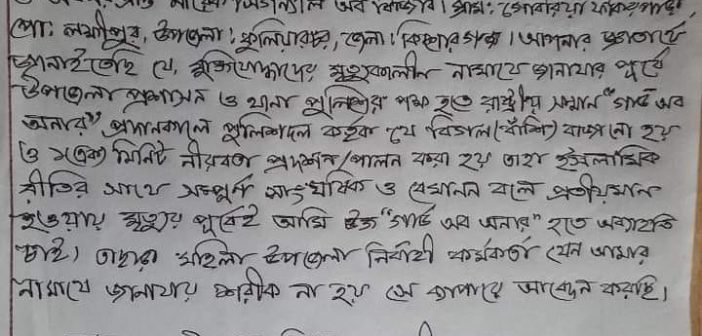 গ্রাম: গোবরিয়া
পো: লক্ষীপুর, উপজেলা: কুলিয়ারচর, জেলা: কিশোরগঞ্জ। আপনার জ্ঞাতার্থে
জানাইতেছি যে, মুক্তিযোদ্ধাদের মৃত্যুকালীন নামাযে জানাযার পূর্বে
উপজেলা প্রশাসন ও থানা পুলিশের পক্ষ হতে রাষ্ট্রীয় সম্মান "গার্ড অব
অনার" প্রদানকালে পুলিশদল কর্তৃক যে বিগল (বাঁশি) বাজানো হয়
ও ১(এক) মিনিট নীরবতা প্রদর্শন/পালন করা হয় তাহা ইসলামিক
রীতির সাথে সম্পূর্ন সাংঘর্ষিক ও বেমানান বলে প্রতীয়মান
হওয়ায় মৃত্যুর পূর্বেই আমি উক্ত "গার্ড অব অনার" হতে অব্যাহতি
চাই। তাছাড়া মহিলা উপজেলা নির্বাহী কর্মকর্তা যেন আমার
নামাযে জানাযায় শরীক না হয় সে ব্যাপারে আবেদন করছি।